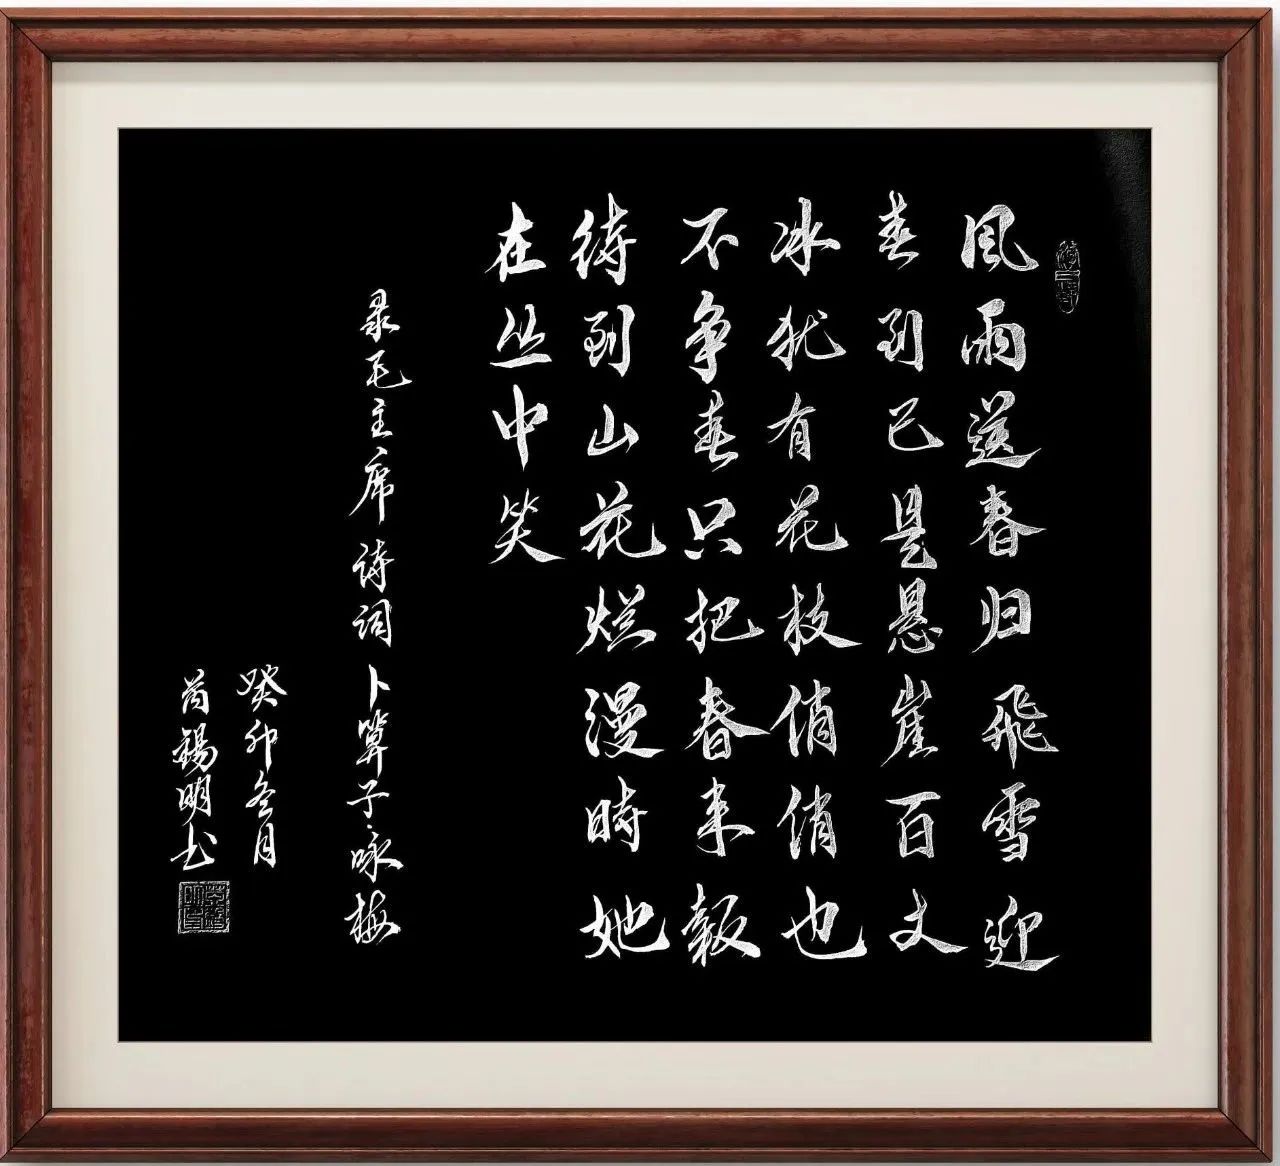 風雨送春归飛雪迎
春到已是悬崖百丈
冰犹有花枝俏俏也
不争春只把春来報
待到山花烂漫時她
在丛中笑
录毛主席诗词卜算子·咏梅
癸卯冬月
芮锡明书